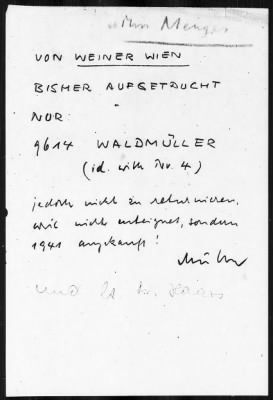 VON WEINER WIEN
BISHER AUFGETAUCHT
NUR:
9614 WALDMÜLLER
(id. with Nr. 4)
jedoch nicht zu retournieren,
weil nicht enteignet, sondern
1941 angekauft!
und